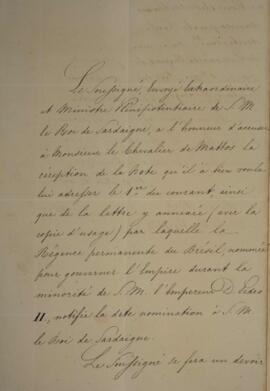 Le Soussigné, Envoyé Extraordinaire
et Ministre Plénipotentiaire de S. M.
le Roi de Sardaigne, a l'honneur d'accuser
à Monsieur le Chevalier de Mattos la
réception de la Note qu'il a bien voulu
lui adresser le 1er du courant, ainsi
que de la lettre y annexée (avec la
copie d'usage) par laquelle la
Régence permanente du Brésil, nommée
pour gouverner l'Empire durant la
minorité de S. M. l'Empereur D. Pedro
II, notifie la dite nomination à S. M.
le Roi de Sardaigne.
Le Soussigné se fera un devoir